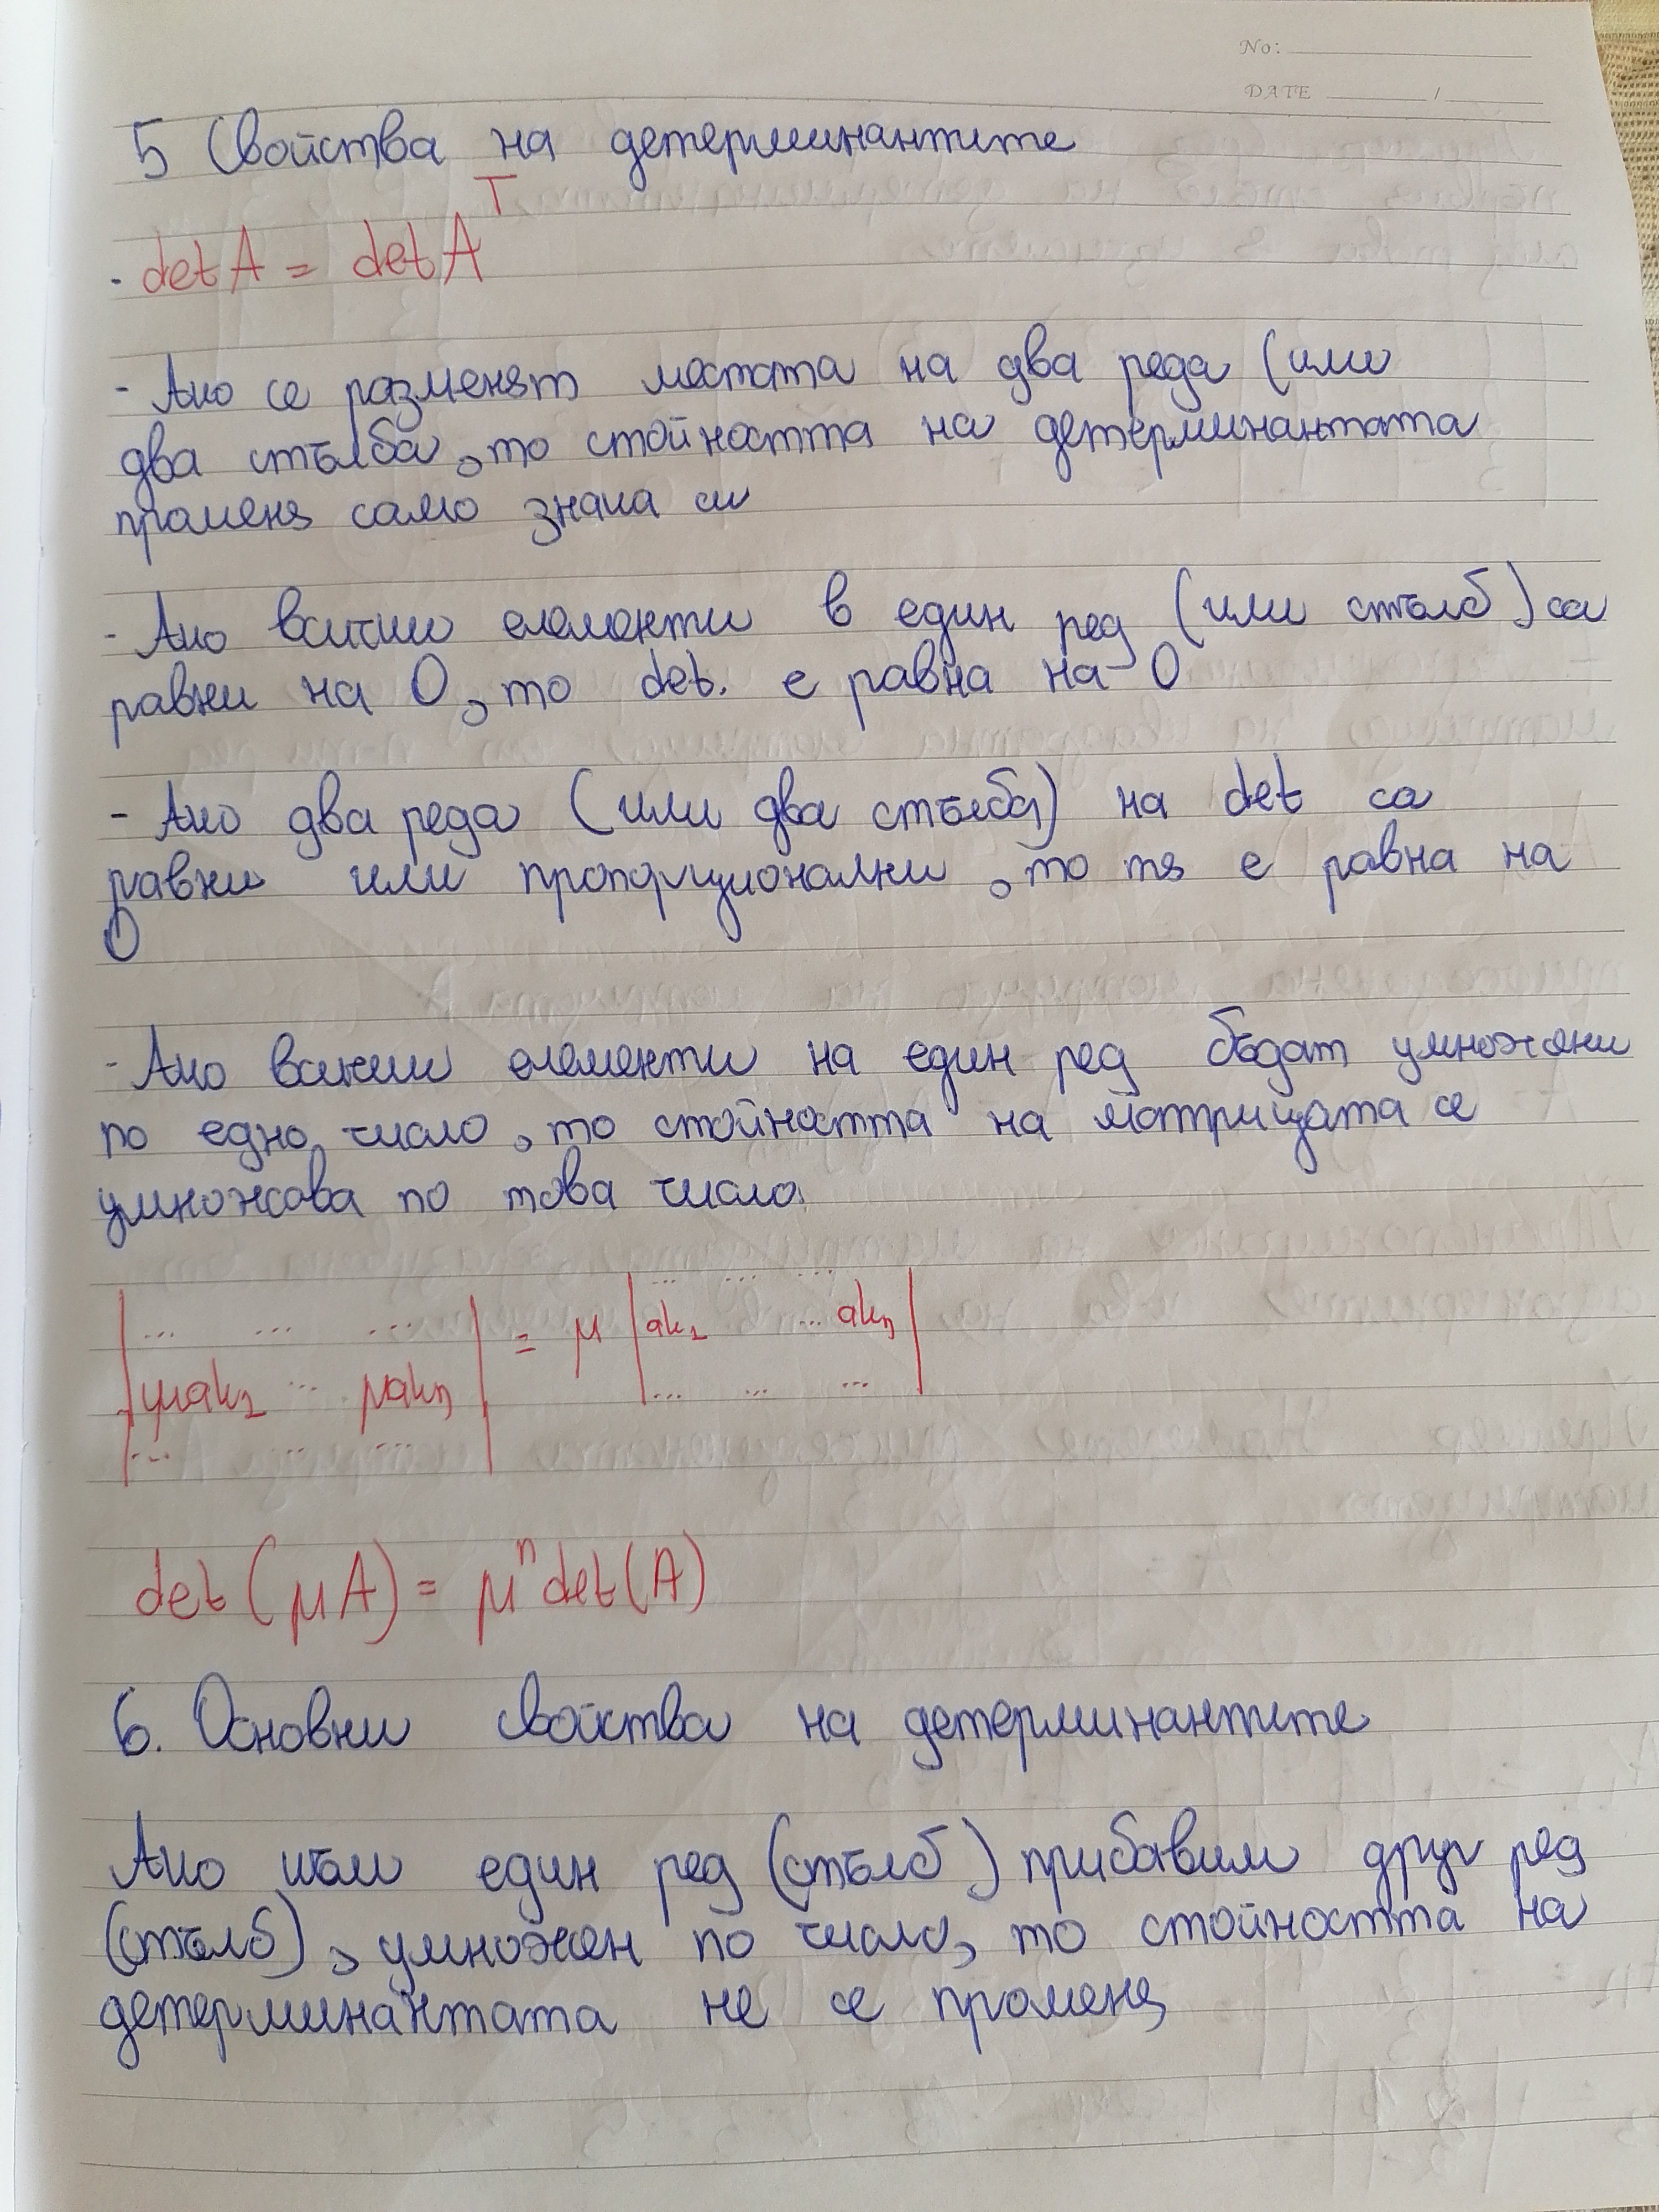 No:
DATE /
5 Свойства на детерминантите
- detA = detA^T
- Ако се разменят местата на два реда (или
два стълба, то стойността на детерминантата
променя само знака си
- Ако всички елементи в един ред (или стълб) са
равни на 0, то det. е равна на 0
- Ако два реда (или два стълба) на det са
равни или пропорционални, то тя е равна на
0
- Ако всички елементи на един ред бъдат умножени
по едно число, то стойността на матрицата се
умножава по това число.
| ... ... ... | = μ | ... ... ... |
| μak1 ... μakn | | ak1 ... akn |
| ... ... ... | | ... ... ... |
det(μA) = μ^n det(A)
6. Основни свойства на детерминантите
Ако към един ред (стълб) прибавим друг ред
(стълб), умножен по число, то стойността на
детерминантата не се променя